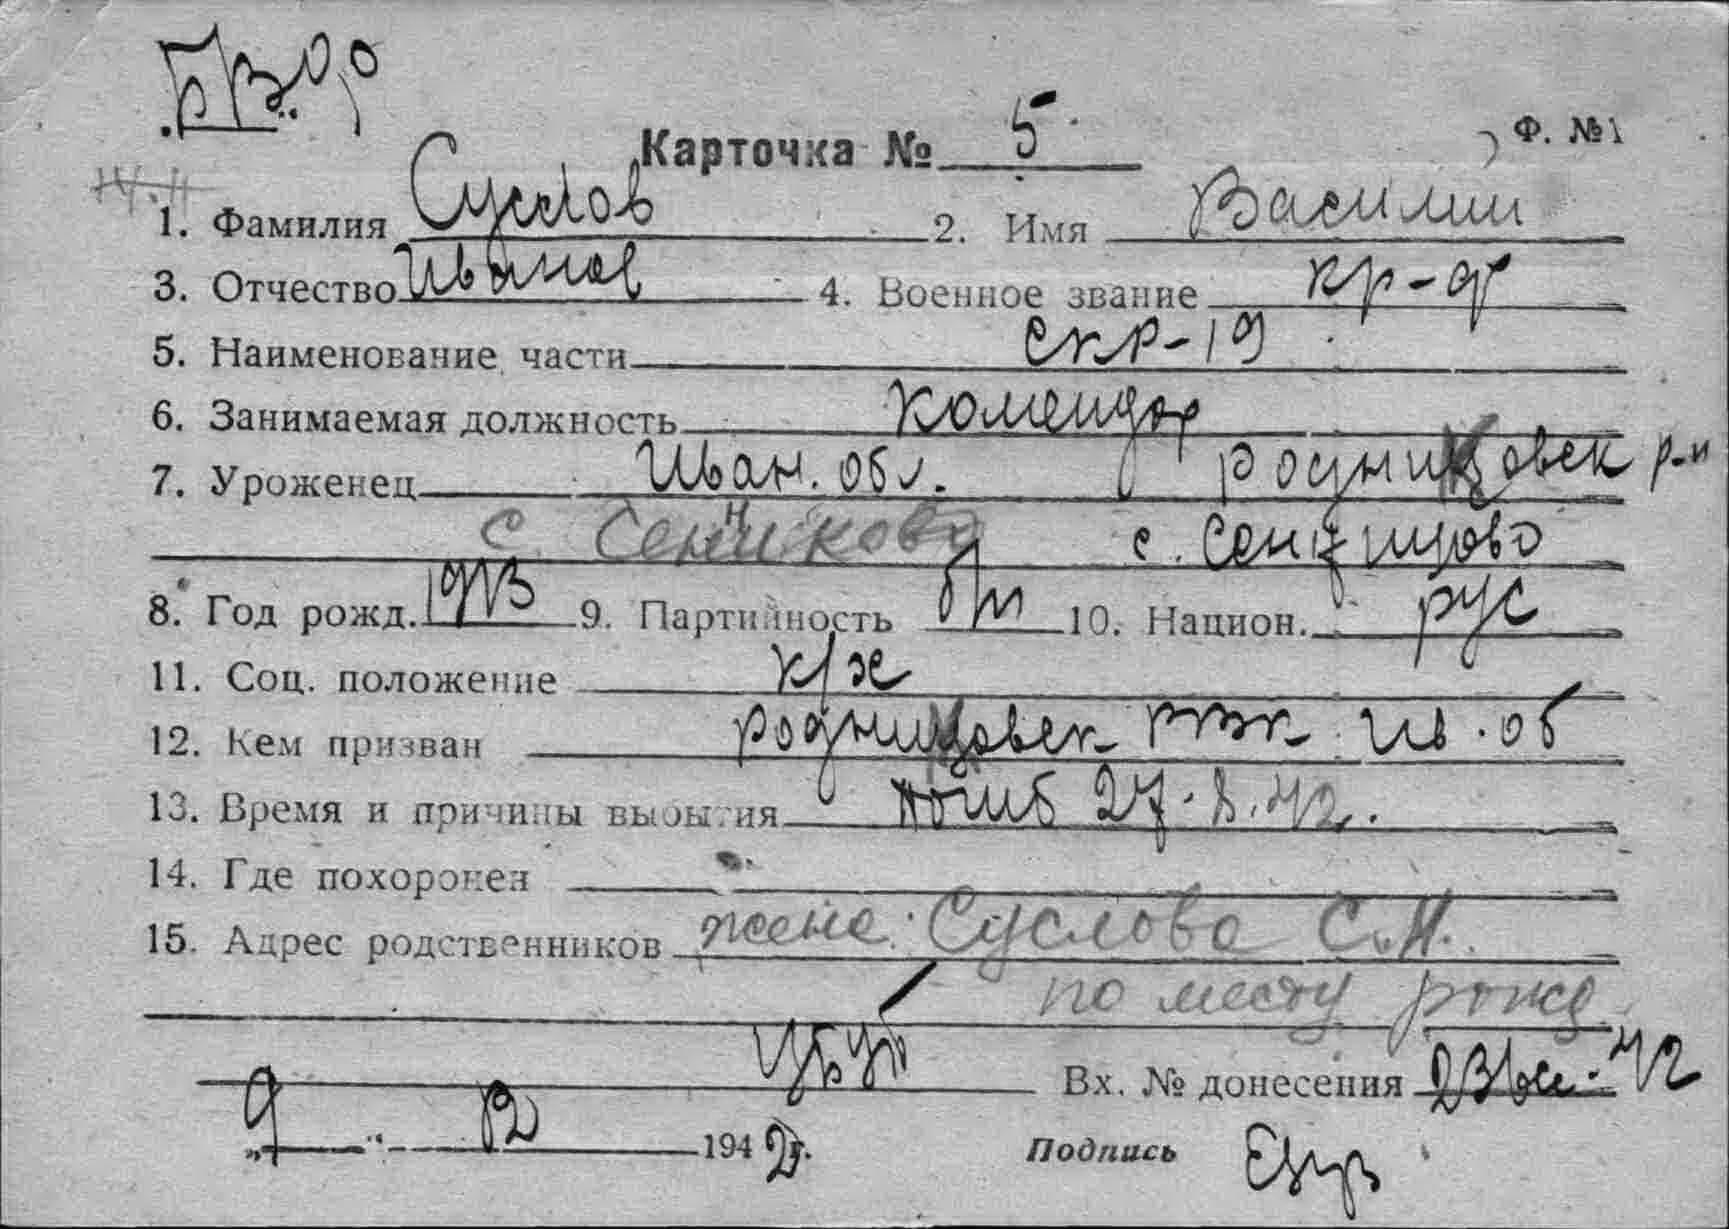 Карточка № 5 Ф. №1
1. Фамилия Суслов 2. Имя Василий
3. Отчество Иванов 4. Военное звание кр-ф
5. Наименование части СКР-19
6. Занимаемая должность комендор
7. Уроженец Иван. обл. Родниковск р-н
с. Сенниково с.
8. Год рожд. 1913 9. Партийность б/п 10. Национ. рус
11. Соц. положение к/х
12. Кем призван Родниковск РВК Ив. об
13. Время и причины выбытия погиб 27.8.42.
14. Где похоронен
15. Адрес родственников жена: Суслова С.И.
по месту рожд
Вх. № донесения 42
„9" 12 1942г. Подпись